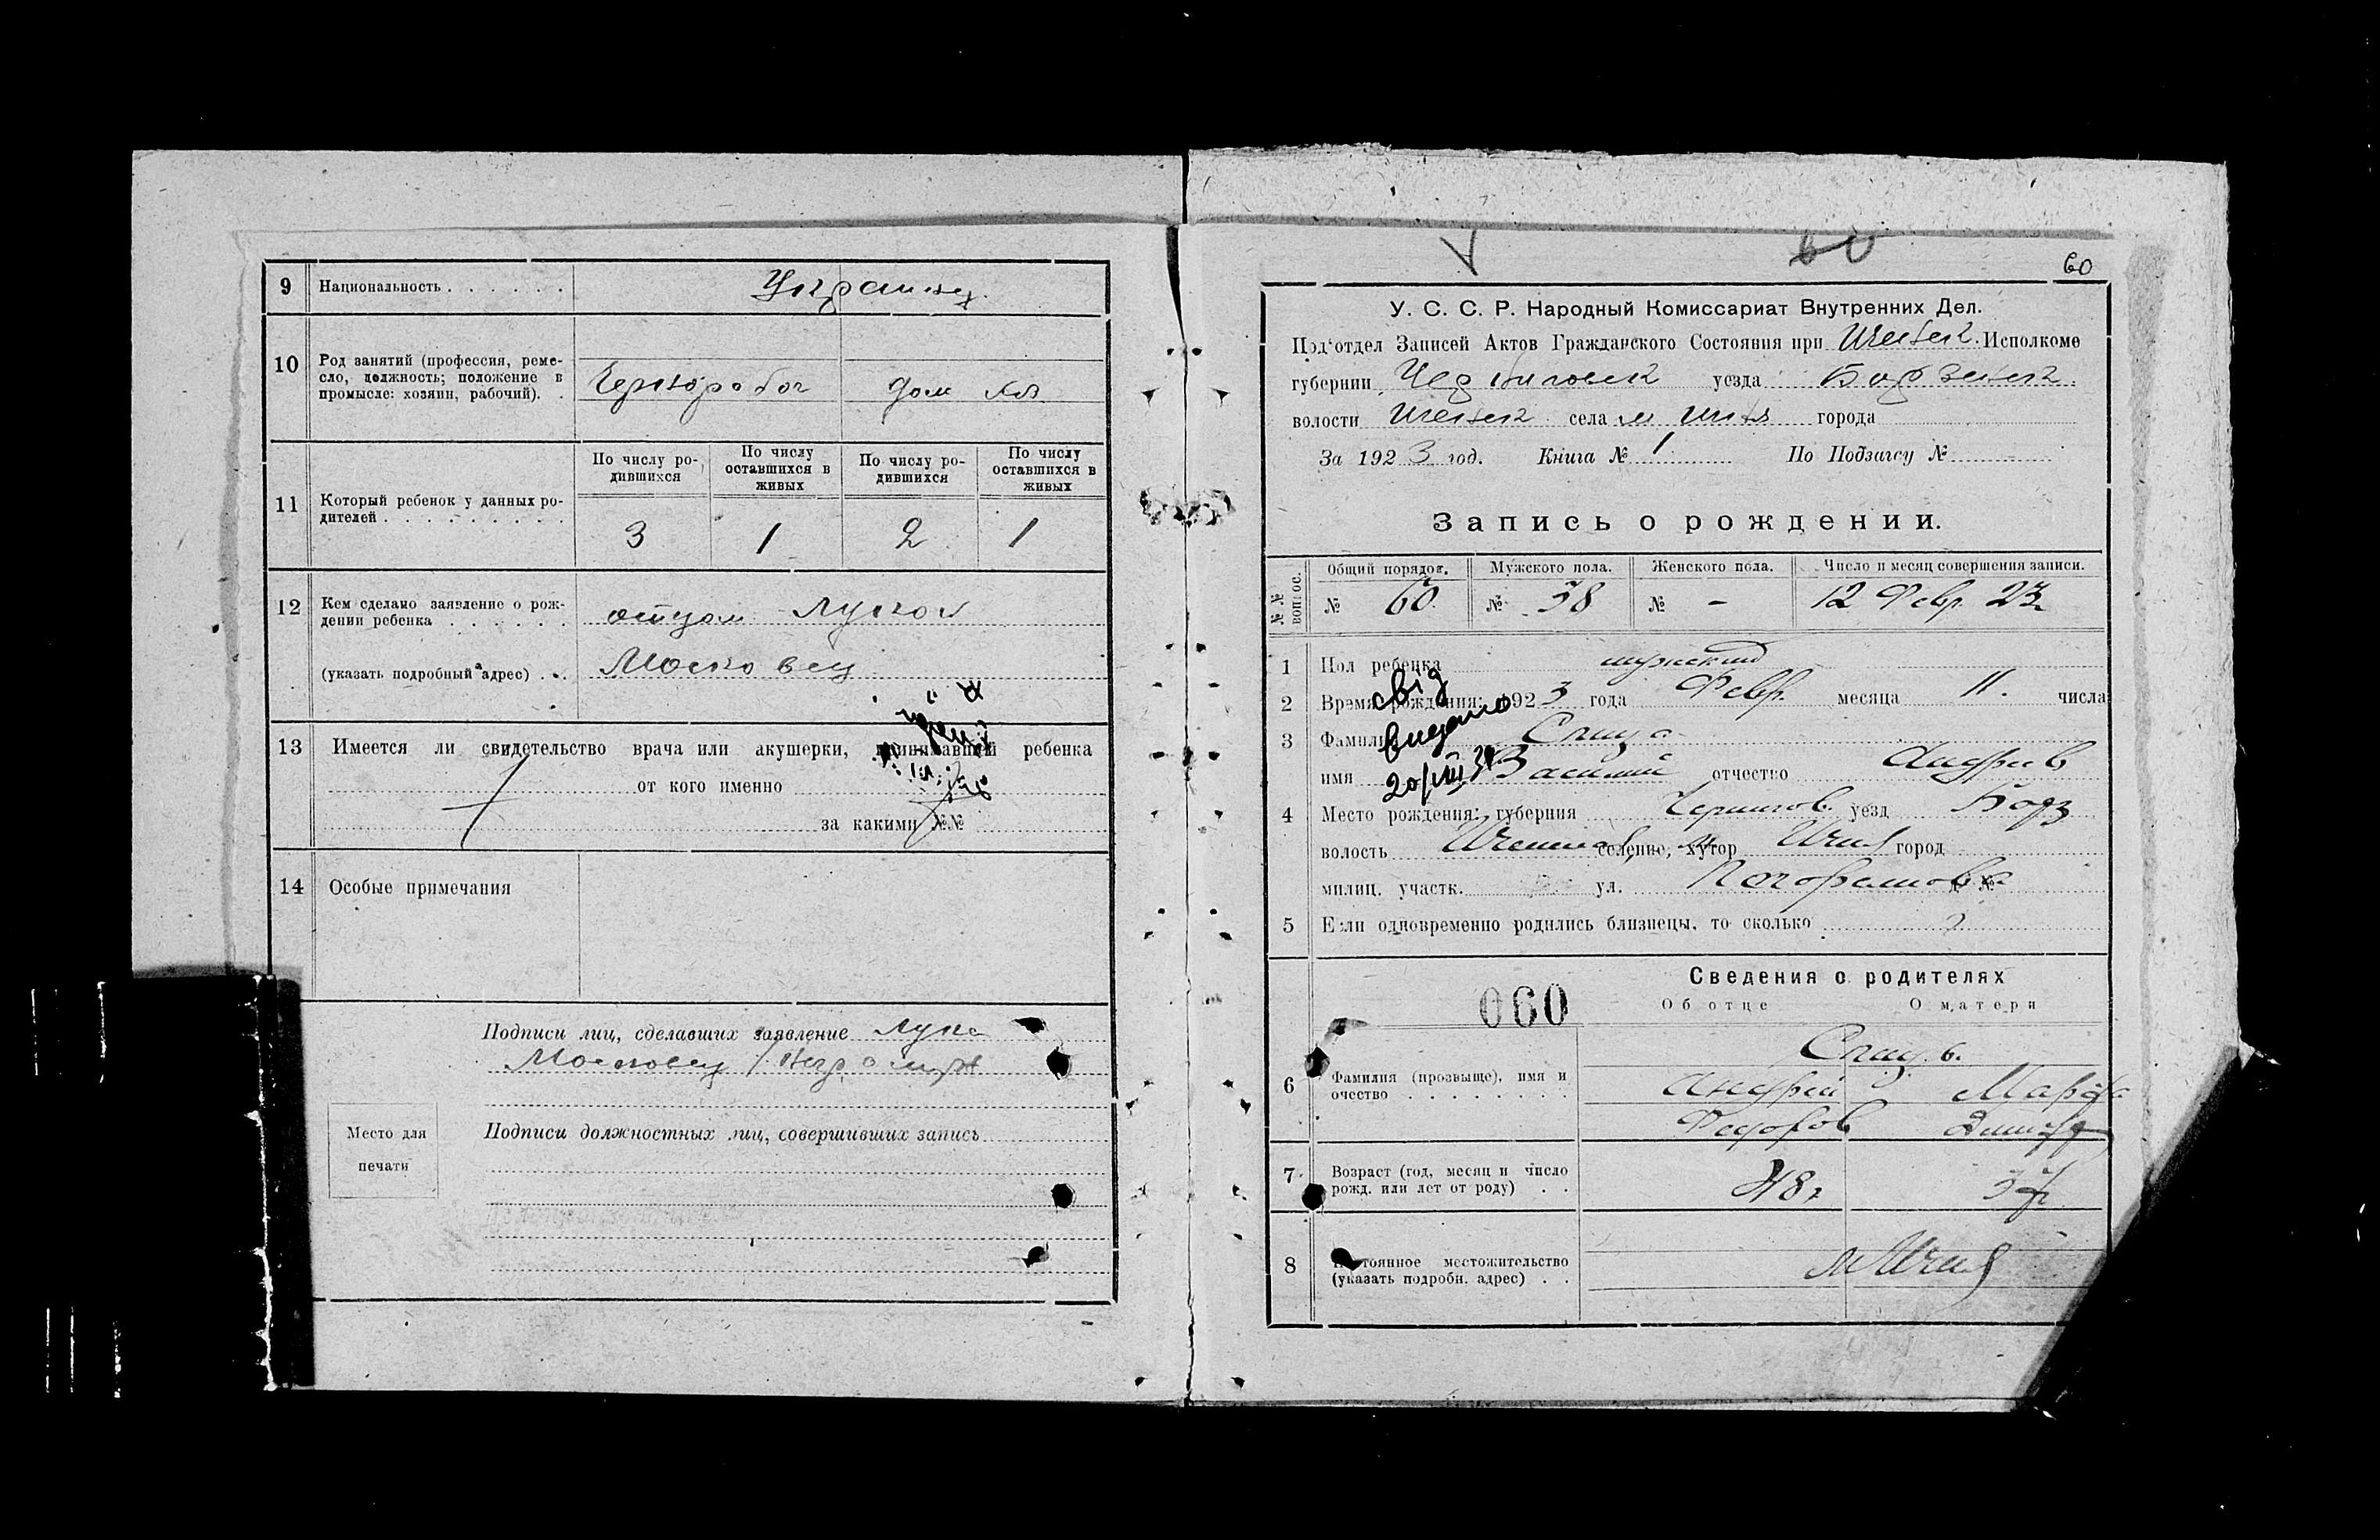 9 Национальность . . . . . . Украинец.
10 Род занятий (профессия, реме-
сло, должность; положение в
промысле: хозяин, рабочий). .
Чернороboч дом хоз
11 Который ребенок у данных ро-
дителей . . . . . . . . .
По числу ро-
дившихся
По числу
оставшихся в
живых
По числу ро-
дившихся
По числу
оставшихся в
живых
3 1 2 1
12 Кем сделано заявление о рож-
дении ребенка . . . . . . отцом Лукой
(указать подробный адрес) . . . Московец
13 Имеется ли свидетельство врача или акушерки, принимавшей ребенка
от кого именно
за какими №№
14 Особые примечания
Подписи лиц, сделавших заявление Лука
Московец
Место для
печати
Подписи должностных лиц, совершивших запись
60
60
У. С. С. Р. Народный Комиссариат Внутренних Дел.
Под'отдел Записей Актов Гражданского Состояния при Иченск. Исполкоме
губернии Черниговск уезда Борзенск.
волости Иченск села м Ичня города
За 1923 год. Книга № 1 По Подзагсу №
Запись о рождении.
№№ вопрос.
Общий порядок. Мужского пола. Женского пола. Число и месяц совершения записи.
№ 60. № 38 № - 12 Февр 23г
1 Пол ребенка мужский
2 Время рождения: 1923 года Февр. месяца 11. числа
3 Фамилия Спица
имя Василий отчество Андреев
свід
видано
20/VIII 34
4 Место рождения: губерния Чернигов. уезд Борз
волость Иченская селение, хутор Ичня город
милиц. участк. ул. д. №
5 Если одновременно родились близнецы, то сколько
060
Сведения о родителях
Об отце О матери
6 Фамилия (прозвыще), имя и
очество . . . . . . . .
Андрей Марфа
Федоров
7 Возраст (год, месяц и число
рожд. или лет от роду) . .
48г
8 Постоянное местожительство
(указать подробн. адрес) . .
м Ичня